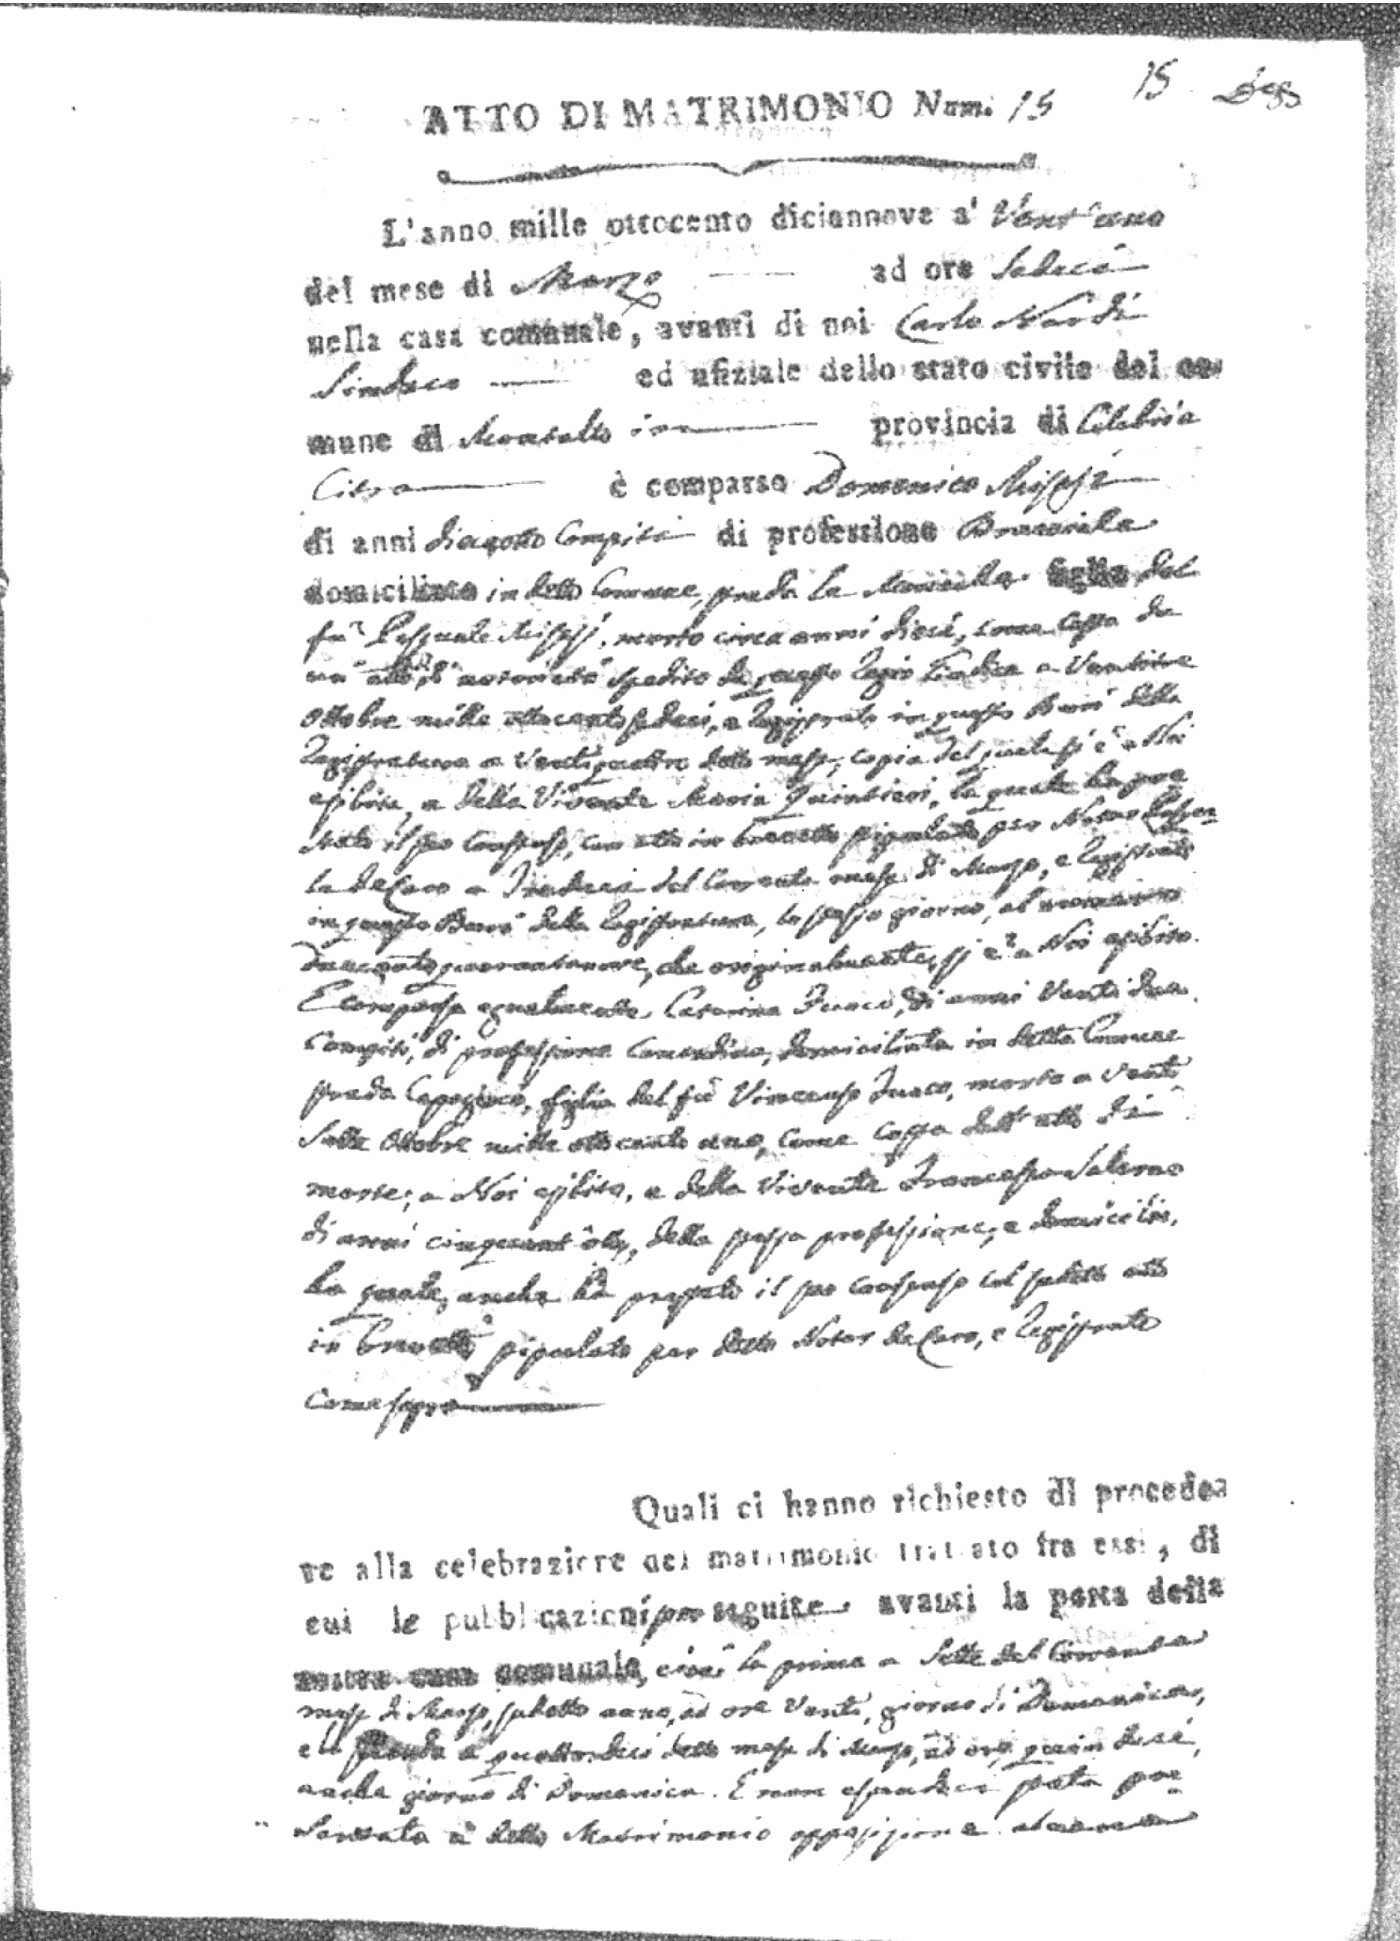 15
ATTO DI MATRIMONIO Num. 15
L'anno mille ottocento diciannove a' Vent'uno
del mese di Marzo ad ore Sedeci
nella casa comunale, avanti di noi Carlo Nardi
Sindaco ed ufiziale dello stato civile del co-
mune di Montalto in provincia di Calabria
Citra è comparso Domenico
di anni dieciotto compiti di professione Bracciale
domiciliato in detto Comune, strada la figlio del
fù Pasquale morto circa anni dieci, come costa da
un atto di notorietà spedito da questo Regio Giudice a Ventitre
Ottobre mille ottocento sedeci, e Registrato in questo Burò della
Registratura a Ventiquattro detto mese, copia del quale si è a Noi
esibita, e della Vivente Maria Quintieri, la quale ha pre
stato il suo Consenso, con atto in brevetto stipulato per Notar
de Caro a Tredeci del Corrente mese di Marzo, e Registrato
in questo Burò della Registratura, lo stesso giorno, al numero
Duecento quarantanove, che originalmente si è a Noi esibito.
E comparsa egualmente Caterina Fuoco, di anni Venti due
compiti, di professione Contadina, domiciliata in detto Comune
strada figlia del fù Vincenzo Fuoco, morto a Venti
Sette Ottobre mille ottocento uno, come costa dall'atto di
morte, a Noi esibito, e della Vivente Francesca Salerno
di anni cinquant'otto, della stessa professione, e domicilio,
la quale, anche ha prestato il suo Consenso col sudetto atto
in brevetto stipulato per detto Notar de Caro, e Registrato
Come sopra
Quali ci hanno richiesto di procede
re alla celebrazione del matrimonio trattato fra essi, di
cui le pubblicazioni son seguite avanti la porta della
nostra casa comunale, cioè la prima a Sette del Corrente
mese di Marzo, sudetto anno, ad ore Venti, giorno di Domenica,
e la seconda a quattordeci detto mese di Marzo, ad ore quindeci,
anche giorno di Domenica. E non essendoci stata pre
sentata a detto Matrimonio opposizione alcuna